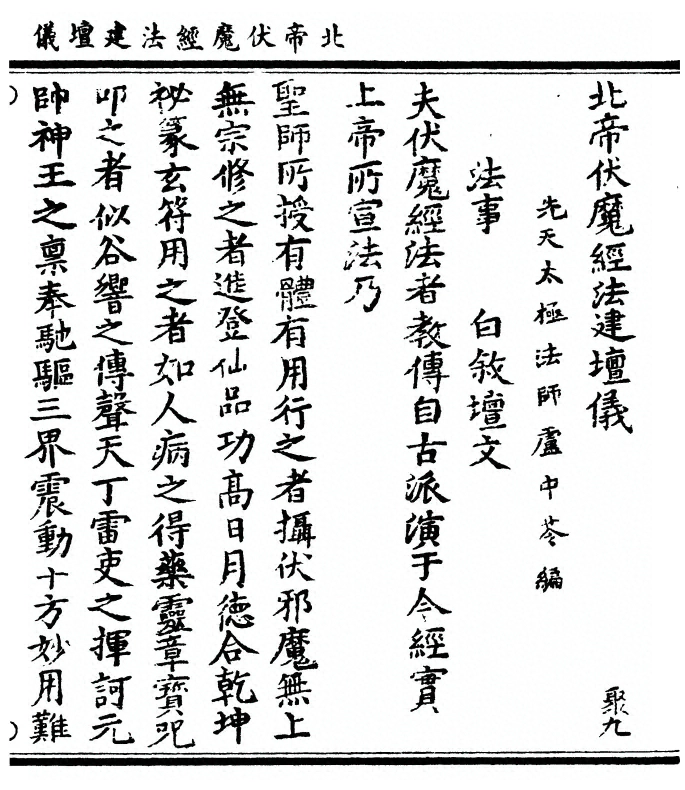 北帝伏魔經法建壇儀
北帝伏魔經法建壇儀
聚九
先天太極法師盧中苓編
法事 白敘壇文
夫伏魔經法者教傳自古派演于今經實
上帝所宣法乃
聖師所授有體有用行之者攝伏邪魔無上
無宗修之者進登仙品功高日月德合乾坤
祕篆玄符用之者如人病之得藥靈章寶呪
叩之者似谷響之傳聲天丁雷吏之揮訶元
帥神王之禀奉馳驅三界震動十方妙用難